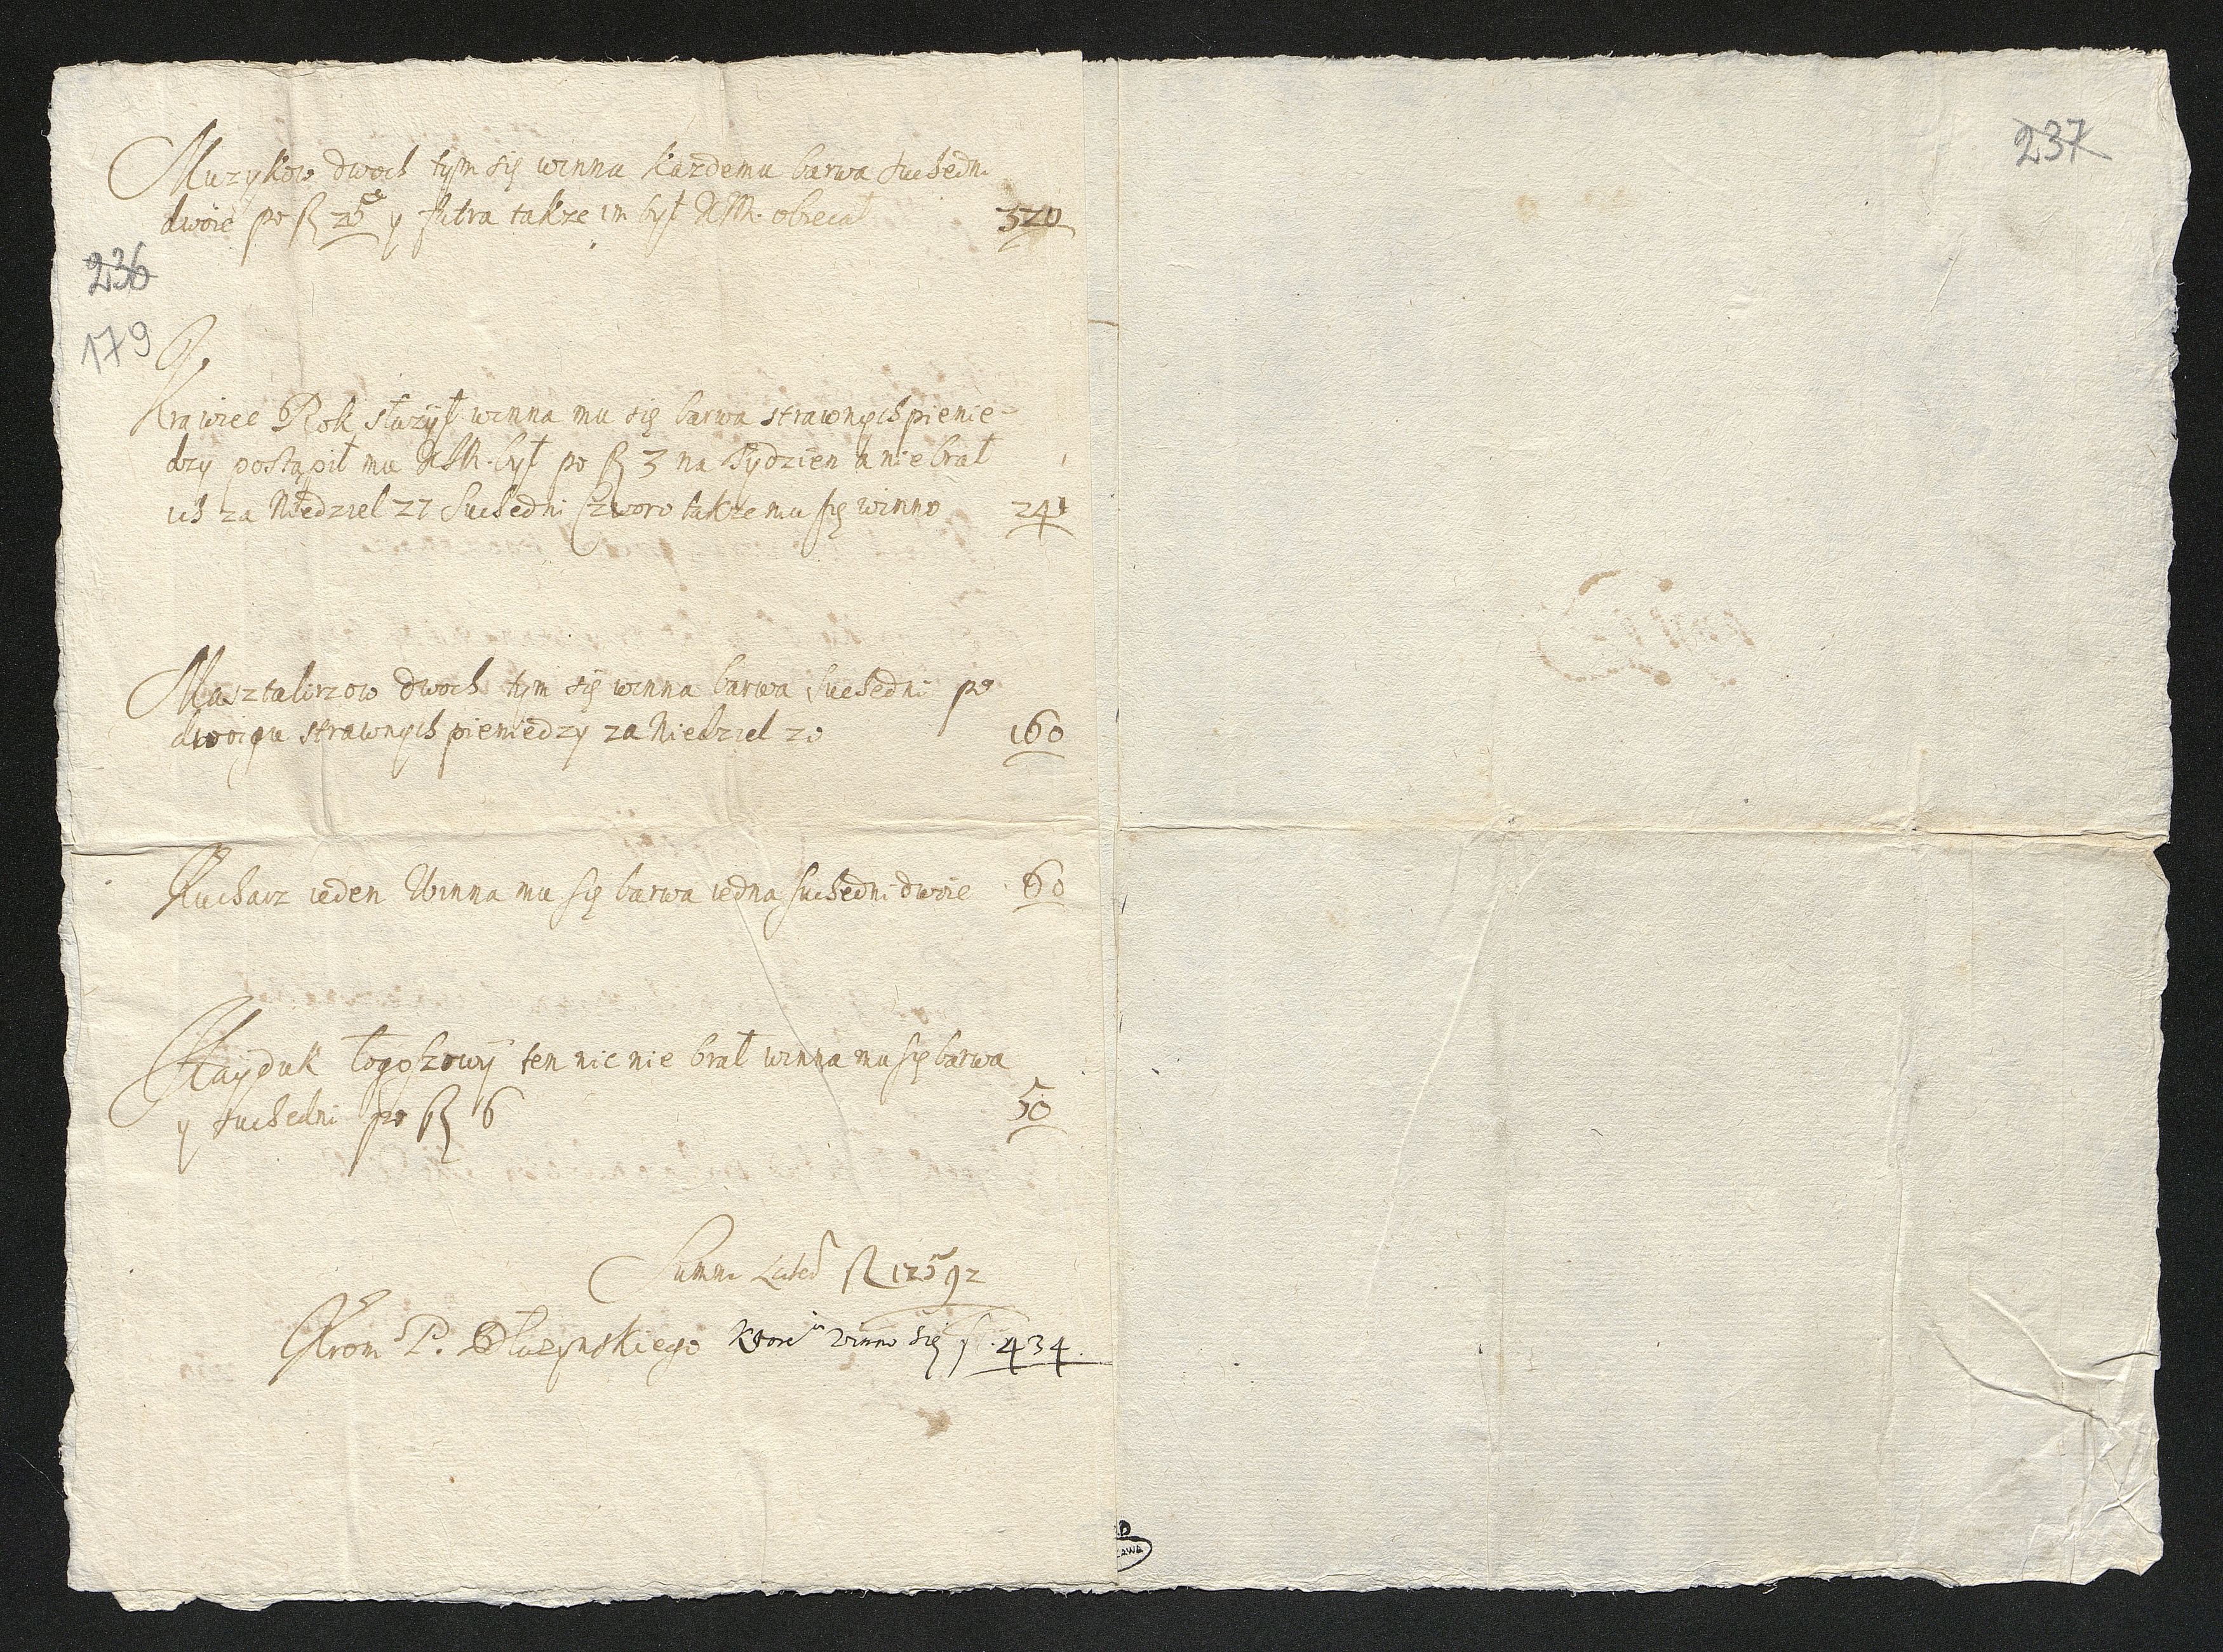 Muzykow dwoch tym się winna każdemu barwa suchedni
dwoie po fl 25 y futra także im był XJM. obiecał 320
237
236
179
Krawiec Rok służył winna mu się barwa strawnych pienie-
dzy postąpił mu XJM. był po fl 3 na Tydzien a nie brał
ich za Niedziel 27 Suchedni Czworo także mu się winno 241
Masztalirzow dwoch tym się winna barwa Suchedni po
dwoigu strawnych pieniedzy za Niedziel 20 160
Kucharz ieden Winna mu się barwa iedna suchedni dwoie 60
Hayduk łogoszowy ten nic nie brał winna mu się barwa
y suchedni po fl 6 50
Summa fl 12592
Krom P. Dłuzynskiego ktore winno się fl. 434.